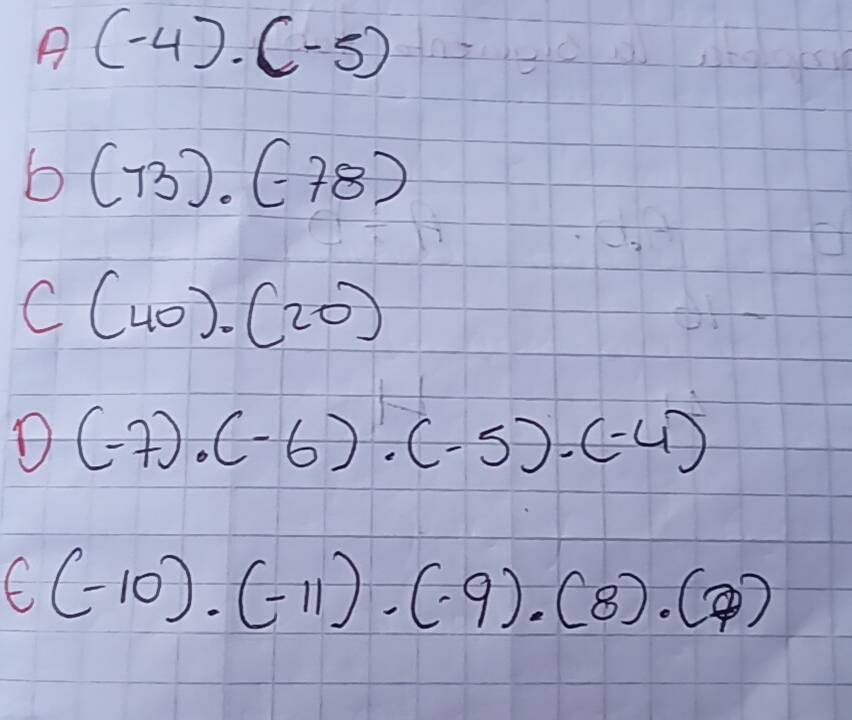 A (-4).(-5)
b (73).(-78)
C (40).(20)
D (-7).(-6).(-5).(-4)
E (-10).(-11).(-9).(8).( )